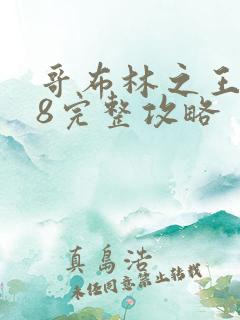 哥布林之王
8完整攻略
真島浩
未经同意禁止转载